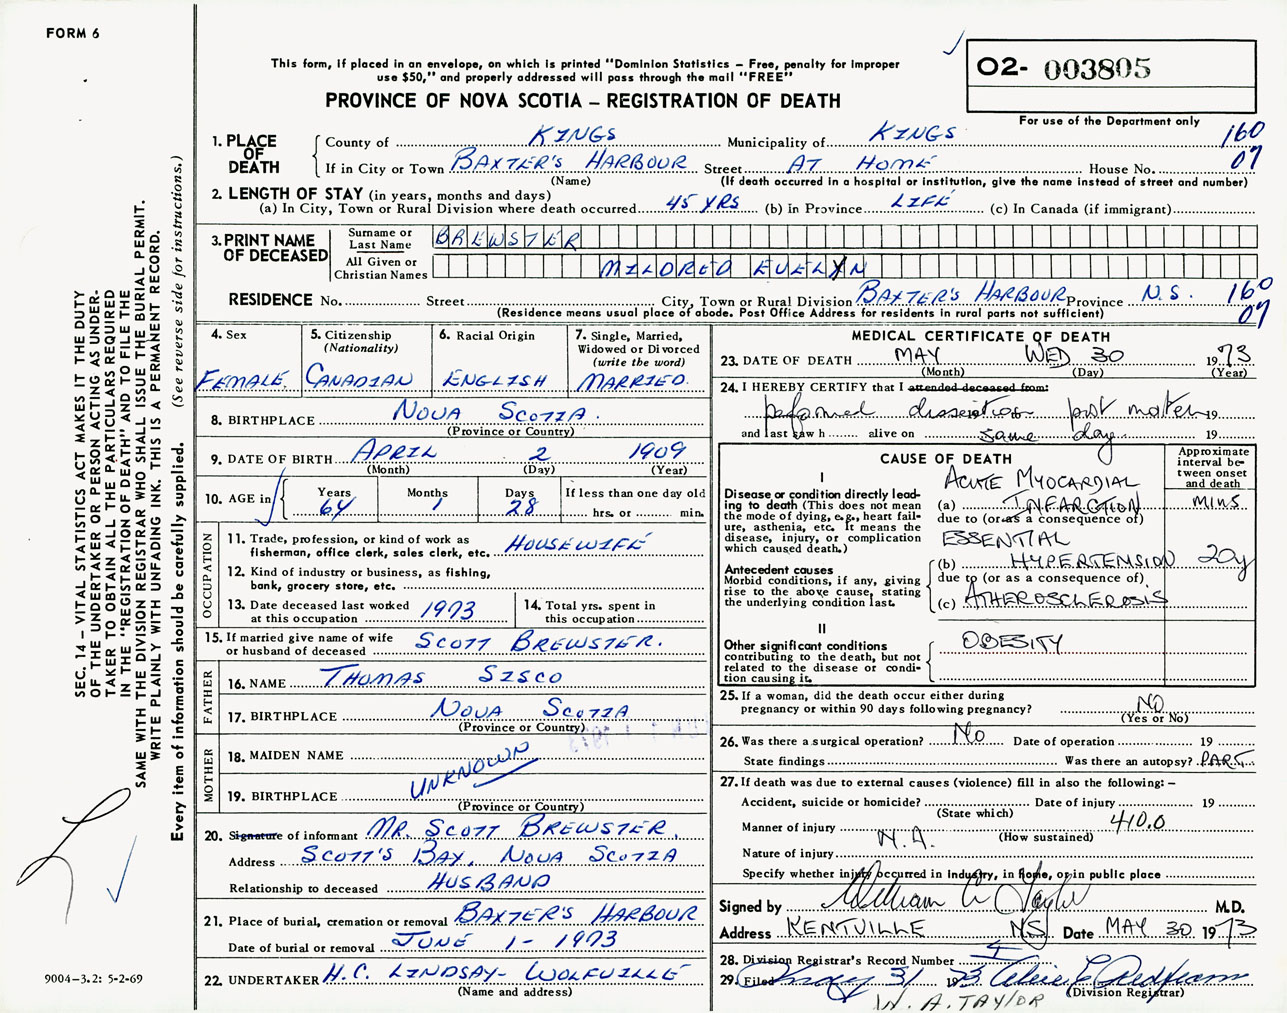 FORM 6
This form, if placed in an envelope, on which is printed "Dominion Statistics – Free, penalty for improper
use $50," and properly addressed will pass through the mail "FREE"
PROVINCE OF NOVA SCOTIA – REGISTRATION OF DEATH
02- 003805
For use of the Department only
160
07
1. PLACE OF DEATH
County of KINGS Municipality of KINGS
If in City or Town BAXTER'S HARBOUR Street AT HOME House No.
(Name) (If death occurred in a hospital or institution, give the name instead of street and number)
2. LENGTH OF STAY (in years, months and days)
(a) In City, Town or Rural Division where death occurred 45 YRS (b) in Province LIFE (c) In Canada (if immigrant)
3. PRINT NAME OF DECEASED
Surname or Last Name BREWSTER
All Given or Christian Names MILDRED EVELYN
RESIDENCE No. Street City, Town or Rural Division BAXTER'S HARBOUR Province N.S. 160
07
(Residence means usual place of abode. Post Office Address for residents in rural parts not sufficient)
4. Sex FEMALE
5. Citizenship (Nationality) CANADIAN
6. Racial Origin ENGLISH
7. Single, Married, Widowed or Divorced (write the word) MARRIED
8. BIRTHPLACE NOVA SCOTIA.
(Province or Country)
9. DATE OF BIRTH APRIL 2 1909
(Month) (Day) (Year)
10. AGE in Years 64 Months 1 Days 28 If less than one day old
hrs. or min.
OCCUPATION
11. Trade, profession, or kind of work as
fisherman, office clerk, sales clerk, etc. HOUSEWIFE
12. Kind of industry or business, as fishing,
bank, grocery store, etc.
13. Date deceased last worked
at this occupation 1973
14. Total yrs. spent in
this occupation
15. If married give name of wife
or husband of deceased SCOTT BREWSTER.
FATHER
16. NAME THOMAS SISCO
17. BIRTHPLACE NOVA SCOTIA
(Province or Country)
MOTHER
18. MAIDEN NAME
UNKNOWN
19. BIRTHPLACE
(Province or Country)
20. Signature of informant MR. SCOTT BREWSTER.
Address SCOTT'S BAY, NOVA SCOTIA
Relationship to deceased HUSBAND
21. Place of burial, cremation or removal BAXTER'S HARBOUR
Date of burial or removal JUNE 1 - 1973
22. UNDERTAKER H.C. LINDSAY - WOLFVILLE
(Name and address)
MEDICAL CERTIFICATE OF DEATH
23. DATE OF DEATH MAY WED 30 1973
(Month) (Day) (Year)
24. I HEREBY CERTIFY that I attended deceased from:
performed dissection post mortem 19
and last saw h alive on same day 19
CAUSE OF DEATH
Approximate interval between onset and death
I
Disease or condition directly leading to death (This does not mean the mode of dying, e.g., heart failure, asthenia, etc. It means the disease, injury, or complication which caused death.)
(a) ACUTE MYOCARDIAL INFARCTION MINS
due to (or as a consequence of)
Antecedent causes
Morbid conditions, if any, giving rise to the above cause, stating the underlying condition last.
(b) ESSENTIAL HYPERTENSION 20y
due to (or as a consequence of)
(c) ATHEROSCLEROSIS
II
Other significant conditions
contributing to the death, but not related to the disease or condition causing it.
OBESITY
25. If a woman, did the death occur either during
pregnancy or within 90 days following pregnancy? NO
(Yes or No)
26. Was there a surgical operation? No Date of operation 19
State findings Was there an autopsy? PART.
27. If death was due to external causes (violence) fill in also the following: –
Accident, suicide or homicide? Date of injury 19
(State which)
410.0
Manner of injury N.A.
(How sustained)
Nature of injury
Specify whether injury occurred in Industry, in Home, or in public place
Signed by William A Taylor M.D.
Address KENTVILLE NS Date MAY 30 1973
28. Division Registrar's Record Number
29. Filed May 31 1973
(Division Registrar)
W. A. TAYLOR
SEC. 14 – VITAL STATISTICS ACT MAKES IT THE DUTY
OF THE UNDERTAKER OR PERSON ACTING AS UNDER-
TAKER TO OBTAIN ALL THE PARTICULARS REQUIRED
IN THE "REGISTRATION OF DEATH" AND TO FILE THE
SAME WITH THE DIVISION REGISTRAR WHO SHALL ISSUE THE BURIAL PERMIT.
WRITE PLAINLY WITH UNFADING INK. THIS IS A PERMANENT RECORD.
Every item of information should be carefully supplied. (See reverse side for instructions.)
9004-3.2: 5-2-69